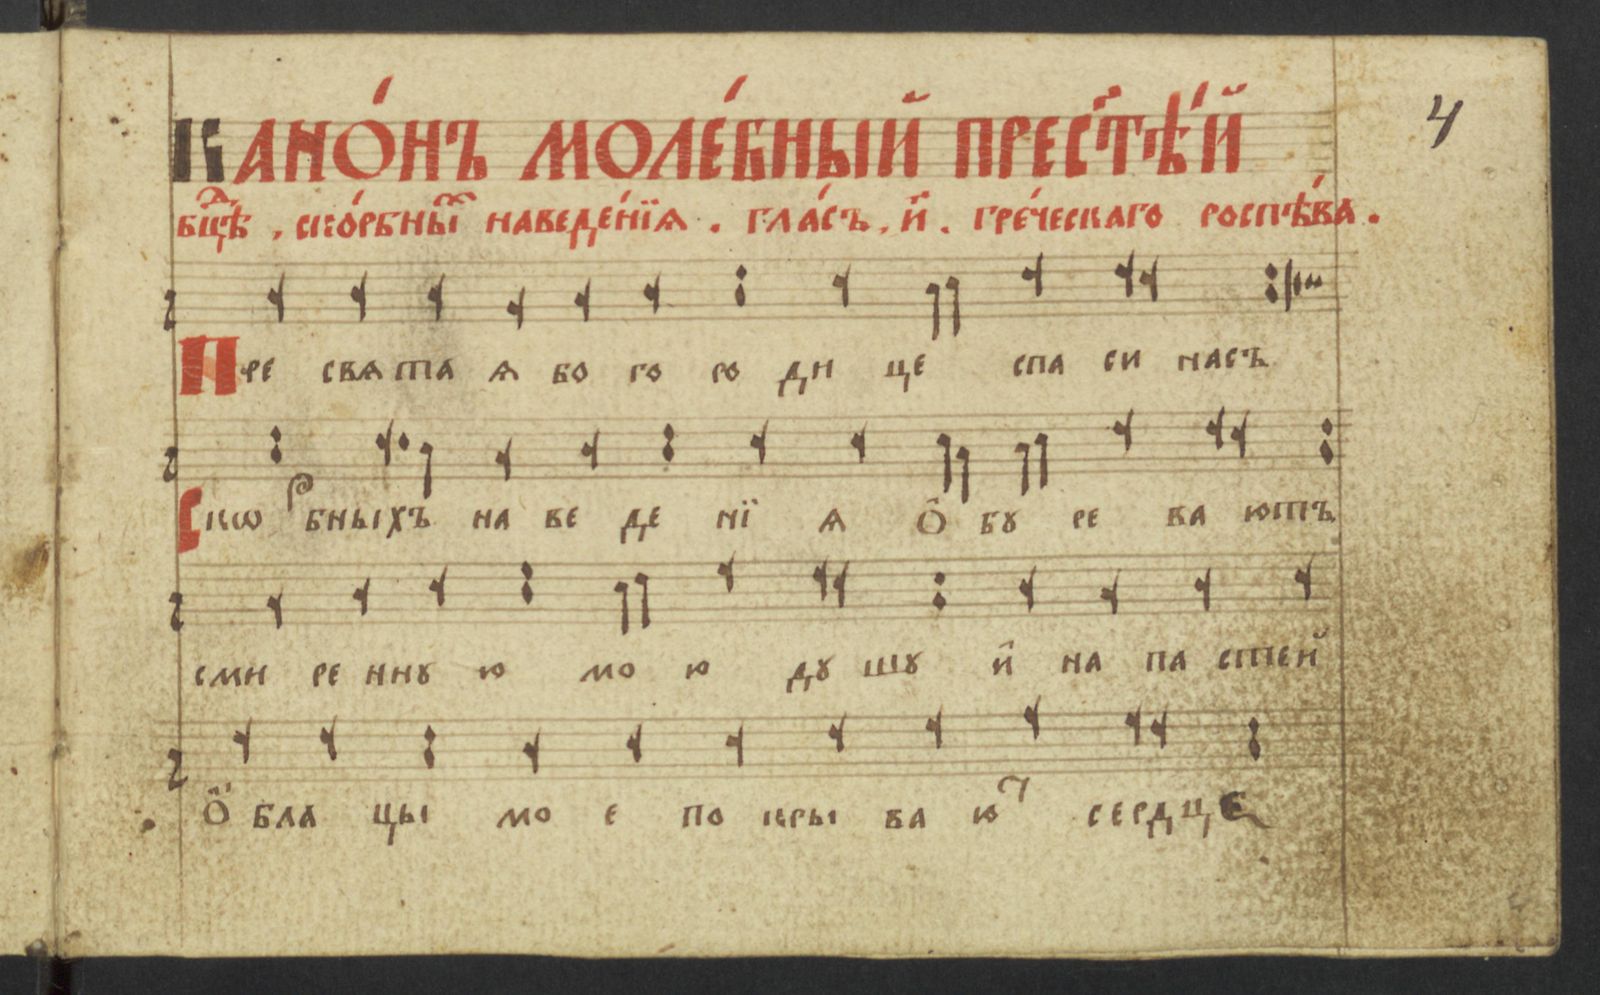 Кано́нъ моле́бный прест҃ѣ́й
бцⷣѣ . ско́рбныⷯ наведе́нїѧ . гла́съ . и҃ . гре́ческаго роспѣ́ва .
4
Пре свѧ таѧ ѧ бо го ро ди це спа си насъ
Скѡ р бныхъ на ве де нї ѧ о̑ бу ре ва ютъ
сми ре нну ю мо ю ду шу и҆ на па стей
О҆ блацы мо е по кры ва ю т сердце